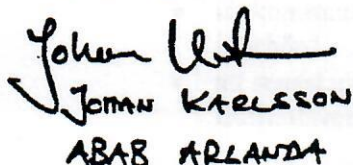 JOHAN KARLSSON
ABAB ARLANDA